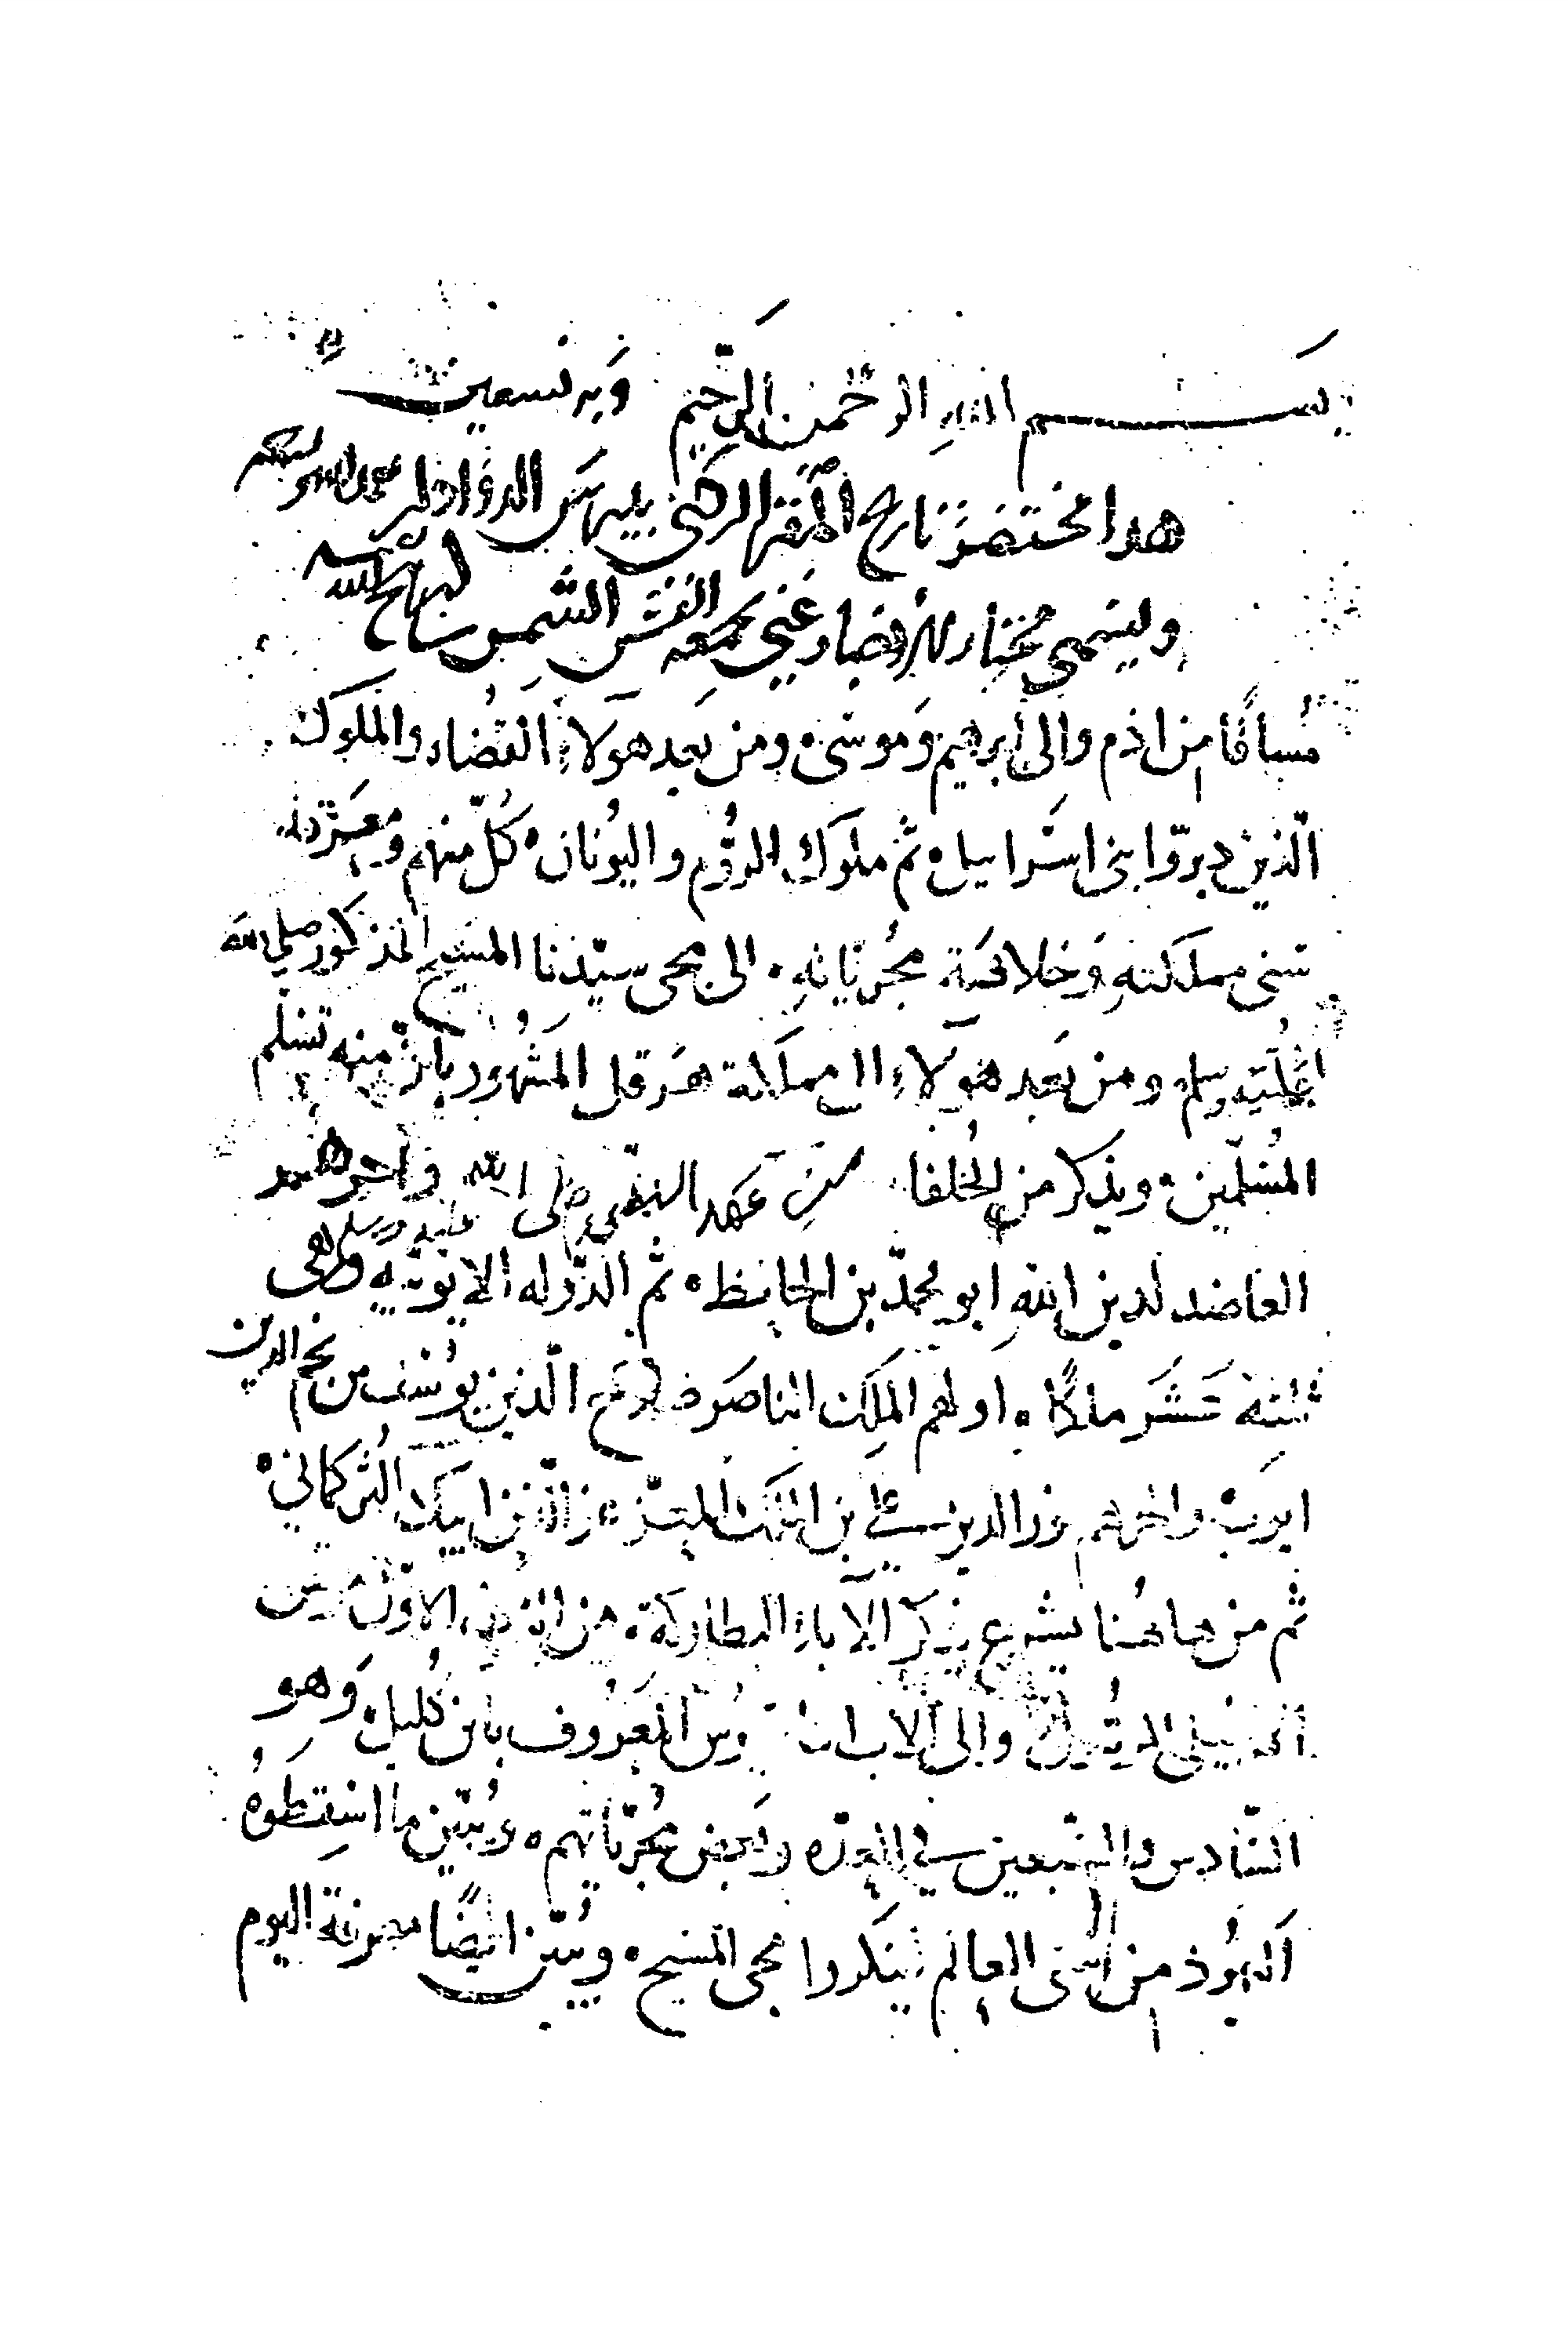 بسم الله الرحمن الرحيم وبه نستعين
هدا مختصر تاريخ المقر الركني بيبرس الدوادار
ويسمى مختار الاخبار عني بجمعه القس الشمس
مساقا من ادم والى ابرهيم وموسى ومن بعد هولاء القضاء والملوك
الذين دبروا بنى اسراييل ثم ملوك الروم واليونان كل منهم ومعرفة
سنى مملكته وخلافته مجرياته الى مجى سيدنا المسيح المذكور صلى الله
عليه وسلم ومن بعد هولاء الى مملكة هرقل المشهور بان منه تسلم
المسلمين ويذكر من الخلفا من عهد النبي صلى الله عليه وسلم واخرهم
العاضد لدين الله ابو محمد بن الحافظ ثم الدوله الايوبيه وهى
ثلثة عشر ملكا اولهم الملك الناصر صلاح الدين يوسف بن نجم الدين
ايوب واخرهم نور الدين علي بن الملك المعز عز الدين ايبك التركماني
ثم من هاهنا يشرع بذكر الاباء البطاركة من الاول
الانجيلى الرسول والى الاب المعروف بابن كليل وهو
السادس والسبعين في العده وبعض مجرياتهم ويبين ما اسقطوه
اليهود من سنى العالم لينكروا مجى المسيح ويبين ايضا معرفة اليوم